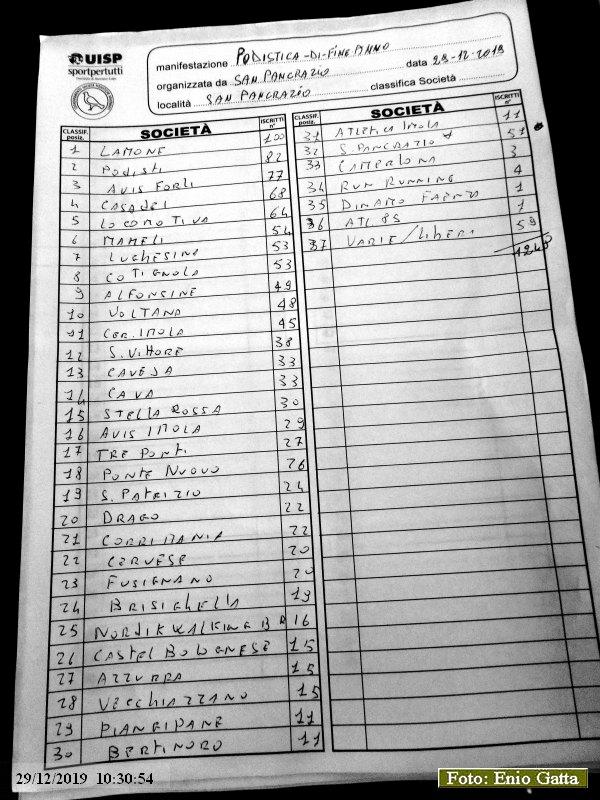 UISP
sportpertutti
manifestazione PODISTICA-DI-FINE ANNO
organizzata da SAN PANCRAZIO data 29-12-2019
località SAN PANCRAZIO classifica Società
CLASSIF. posiz. SOCIETÀ ISCRITTI n°
1 LAMONE 100
2 PODISTI 82
3 AVIS FORLI 77
4 CASADEI 68
5 LOCOMOTIVA 64
6 MAMELI 54
7 LUGHESINA 53
8 COTIGNOLA 53
9 ALFONSINE 49
10 VOLTANA 48
11 CER. IMOLA 45
12 S. VITTORE 38
13 CAVEJA 33
14 CAVA 33
15 STELLA ROSSA 30
16 AVIS IMOLA 29
17 TRE PONTI 27
18 PONTE NUOVO 26
19 S. PATRIZIO 24
20 DRAGO 22
21 CORRIMANIA 22
22 CERVESE 20
23 FUSIGNANO 20
24 BRISIGHELLA 19
25 NORDIK WALKING B R 16
26 CASTEL BOLOGNESE 15
27 AZZURRA 15
28 VECCHIAZZANO 15
29 PIANGIPANE 11
30 BERTINORO 11
CLASSIF. posiz. SOCIETÀ ISCRITTI n°
31 ATLETICA IMOLA 11
32 S. PANCRAZIO 51
33 CAMERLONA 3
34 RUN RUNNING 4
35 DINAMO FAENZA 1
36 ATL. 85 1
37 VARIE/LIBERI 59
1248
29/12/2019 10:30:54
Foto: Enio Gatta